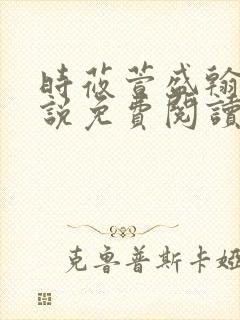 時莜萱盛翰
說免費閱讀
克魯普斯卡婭